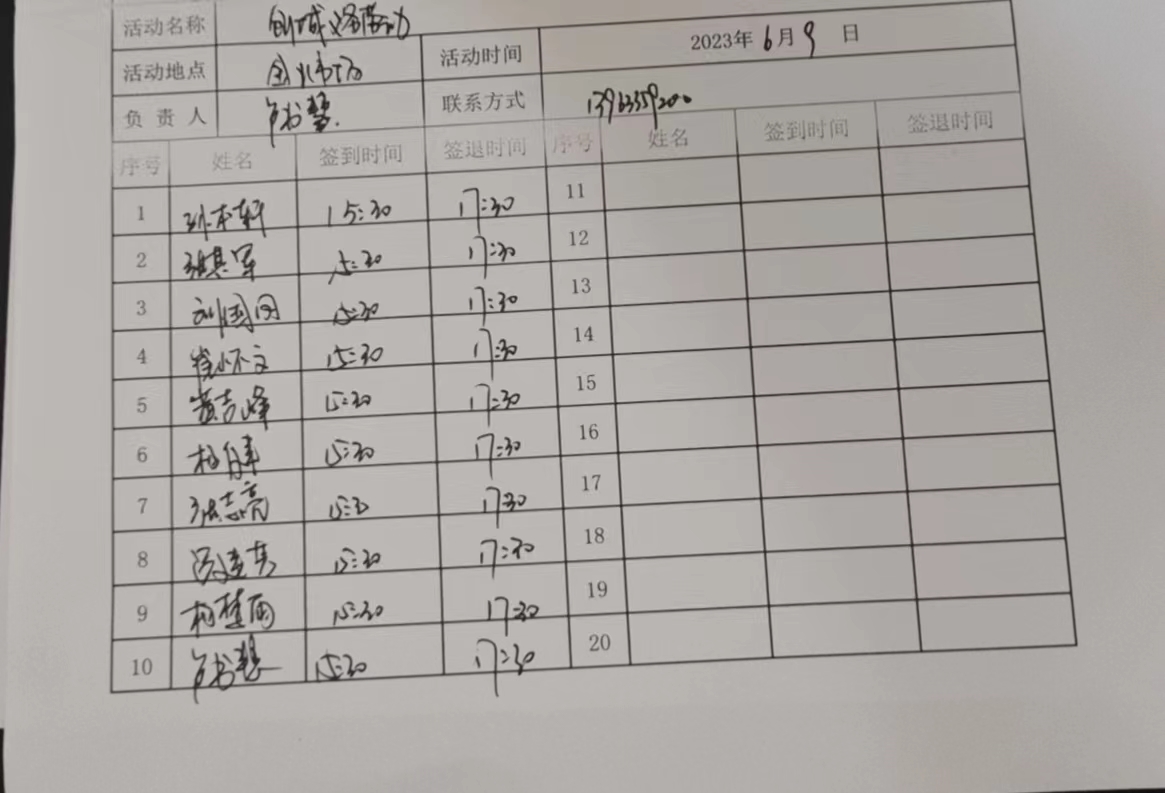 活动名称 创城义务劳动
活动地点 活动时间 2023年6月9日
负责人 联系方式 13963359200
序号 姓名 签到时间 签退时间 序号 姓名 签到时间 签退时间
1 孙本轩 15:30 17:30 11
2 15:30 17:30 12
3 刘国同 15:30 17:30 13
4 徐怀文 15:30 17:30 14
5 黄吉峰 15:30 17:30 15
6 15:30 17:30 16
7 张志亮 15:30 17:30 17
8 15:30 17:30 18
9 17:30 15:30 19
10 15:30 17:30 20